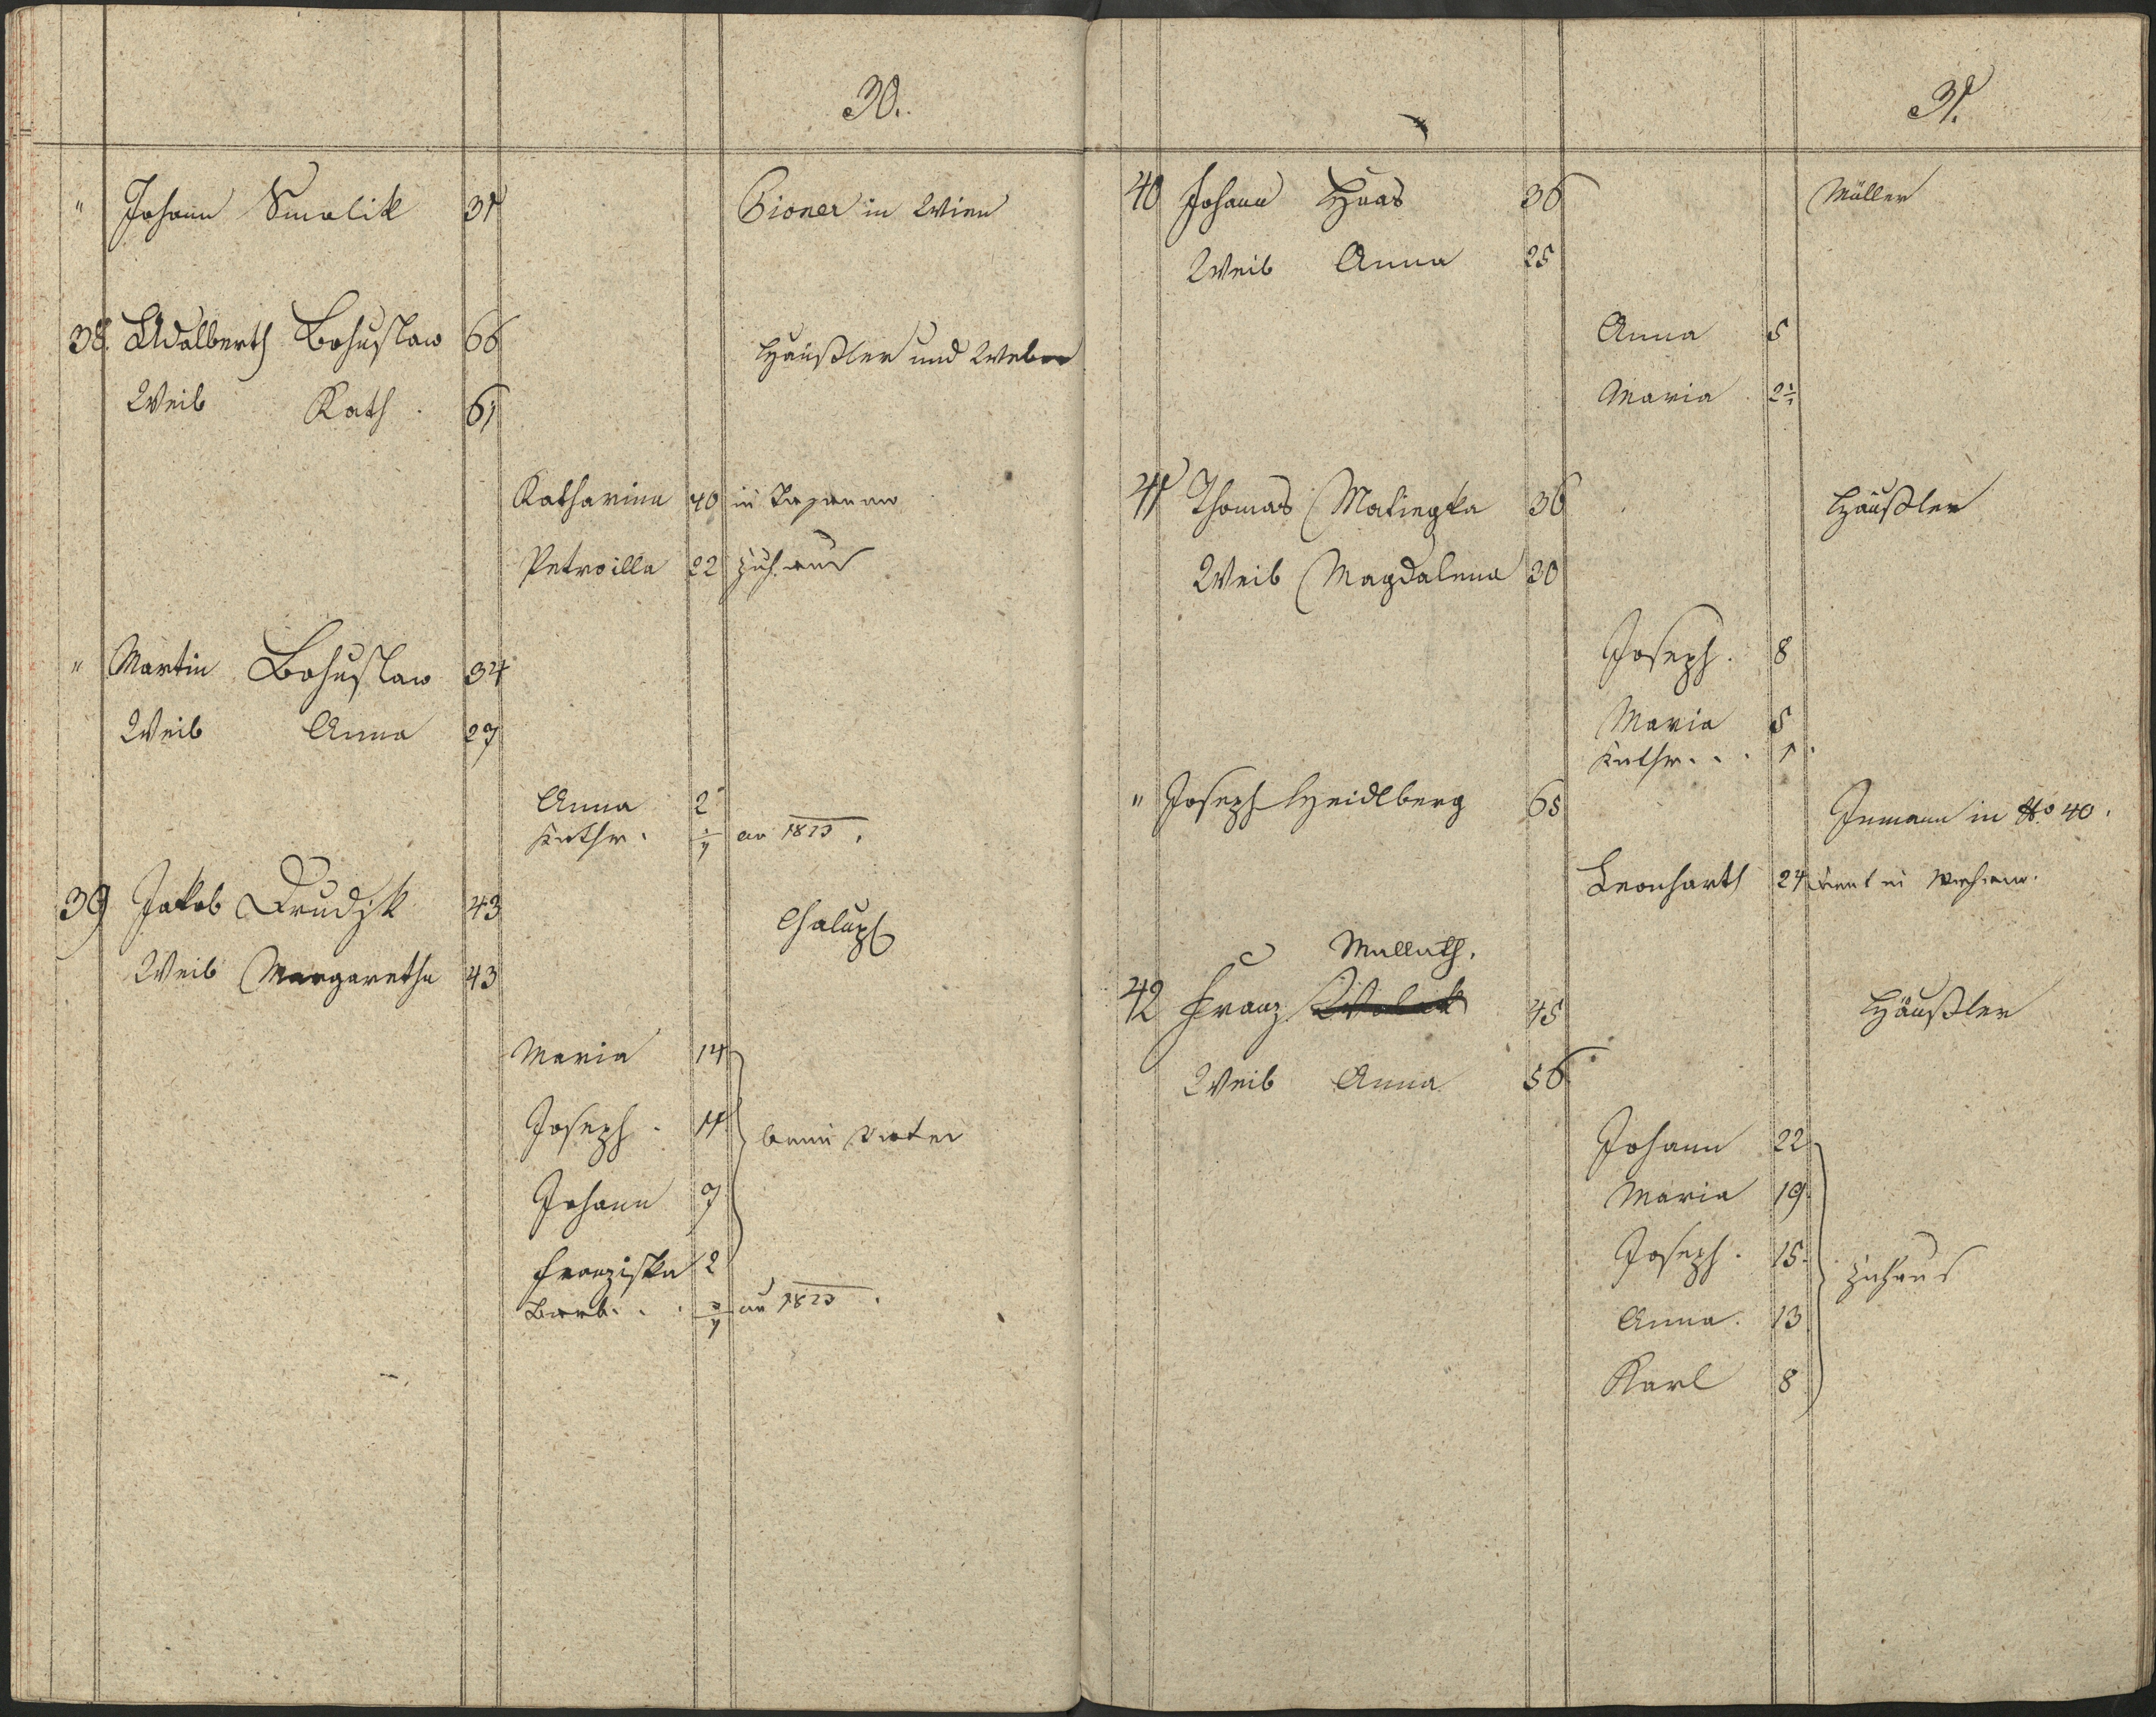 30.
" Johann Smolik 31 Pioner in Wien
38. Adalberth Bohuslaw 66 Häußler und Weber
Weib Kath. 61
Katharina 40 in
Petroilla 22 zuhaus
" Martin Bohuslaw 34
Weib Anna 27
Anna 2
Kathr. au 1823.
39 Jakob Drudik 43 Chalup
Weib Margaretha 43
Maria 14
Joseph. 11 beim Vater
Johann 7
Franziska 2
Barb. . . au 1823.
31.
40 Johann Haas 36 Müller
Weib Anna 25
Anna 5
Maria 2
41 Thomas Matiegka 36 Häußler
Weib Magdalena 30
Joseph. 8
Maria 5
Kathr. . . 1
" Joseph Heidlberg 65 Inmann in No 40.
Leonharth 24 dient in
Mullath.
42 Franz 45 Häußler
Weib Anna 56
Johann 22
Maria 19
Joseph. 15 zuhaus
Anna. 13
Karl 8